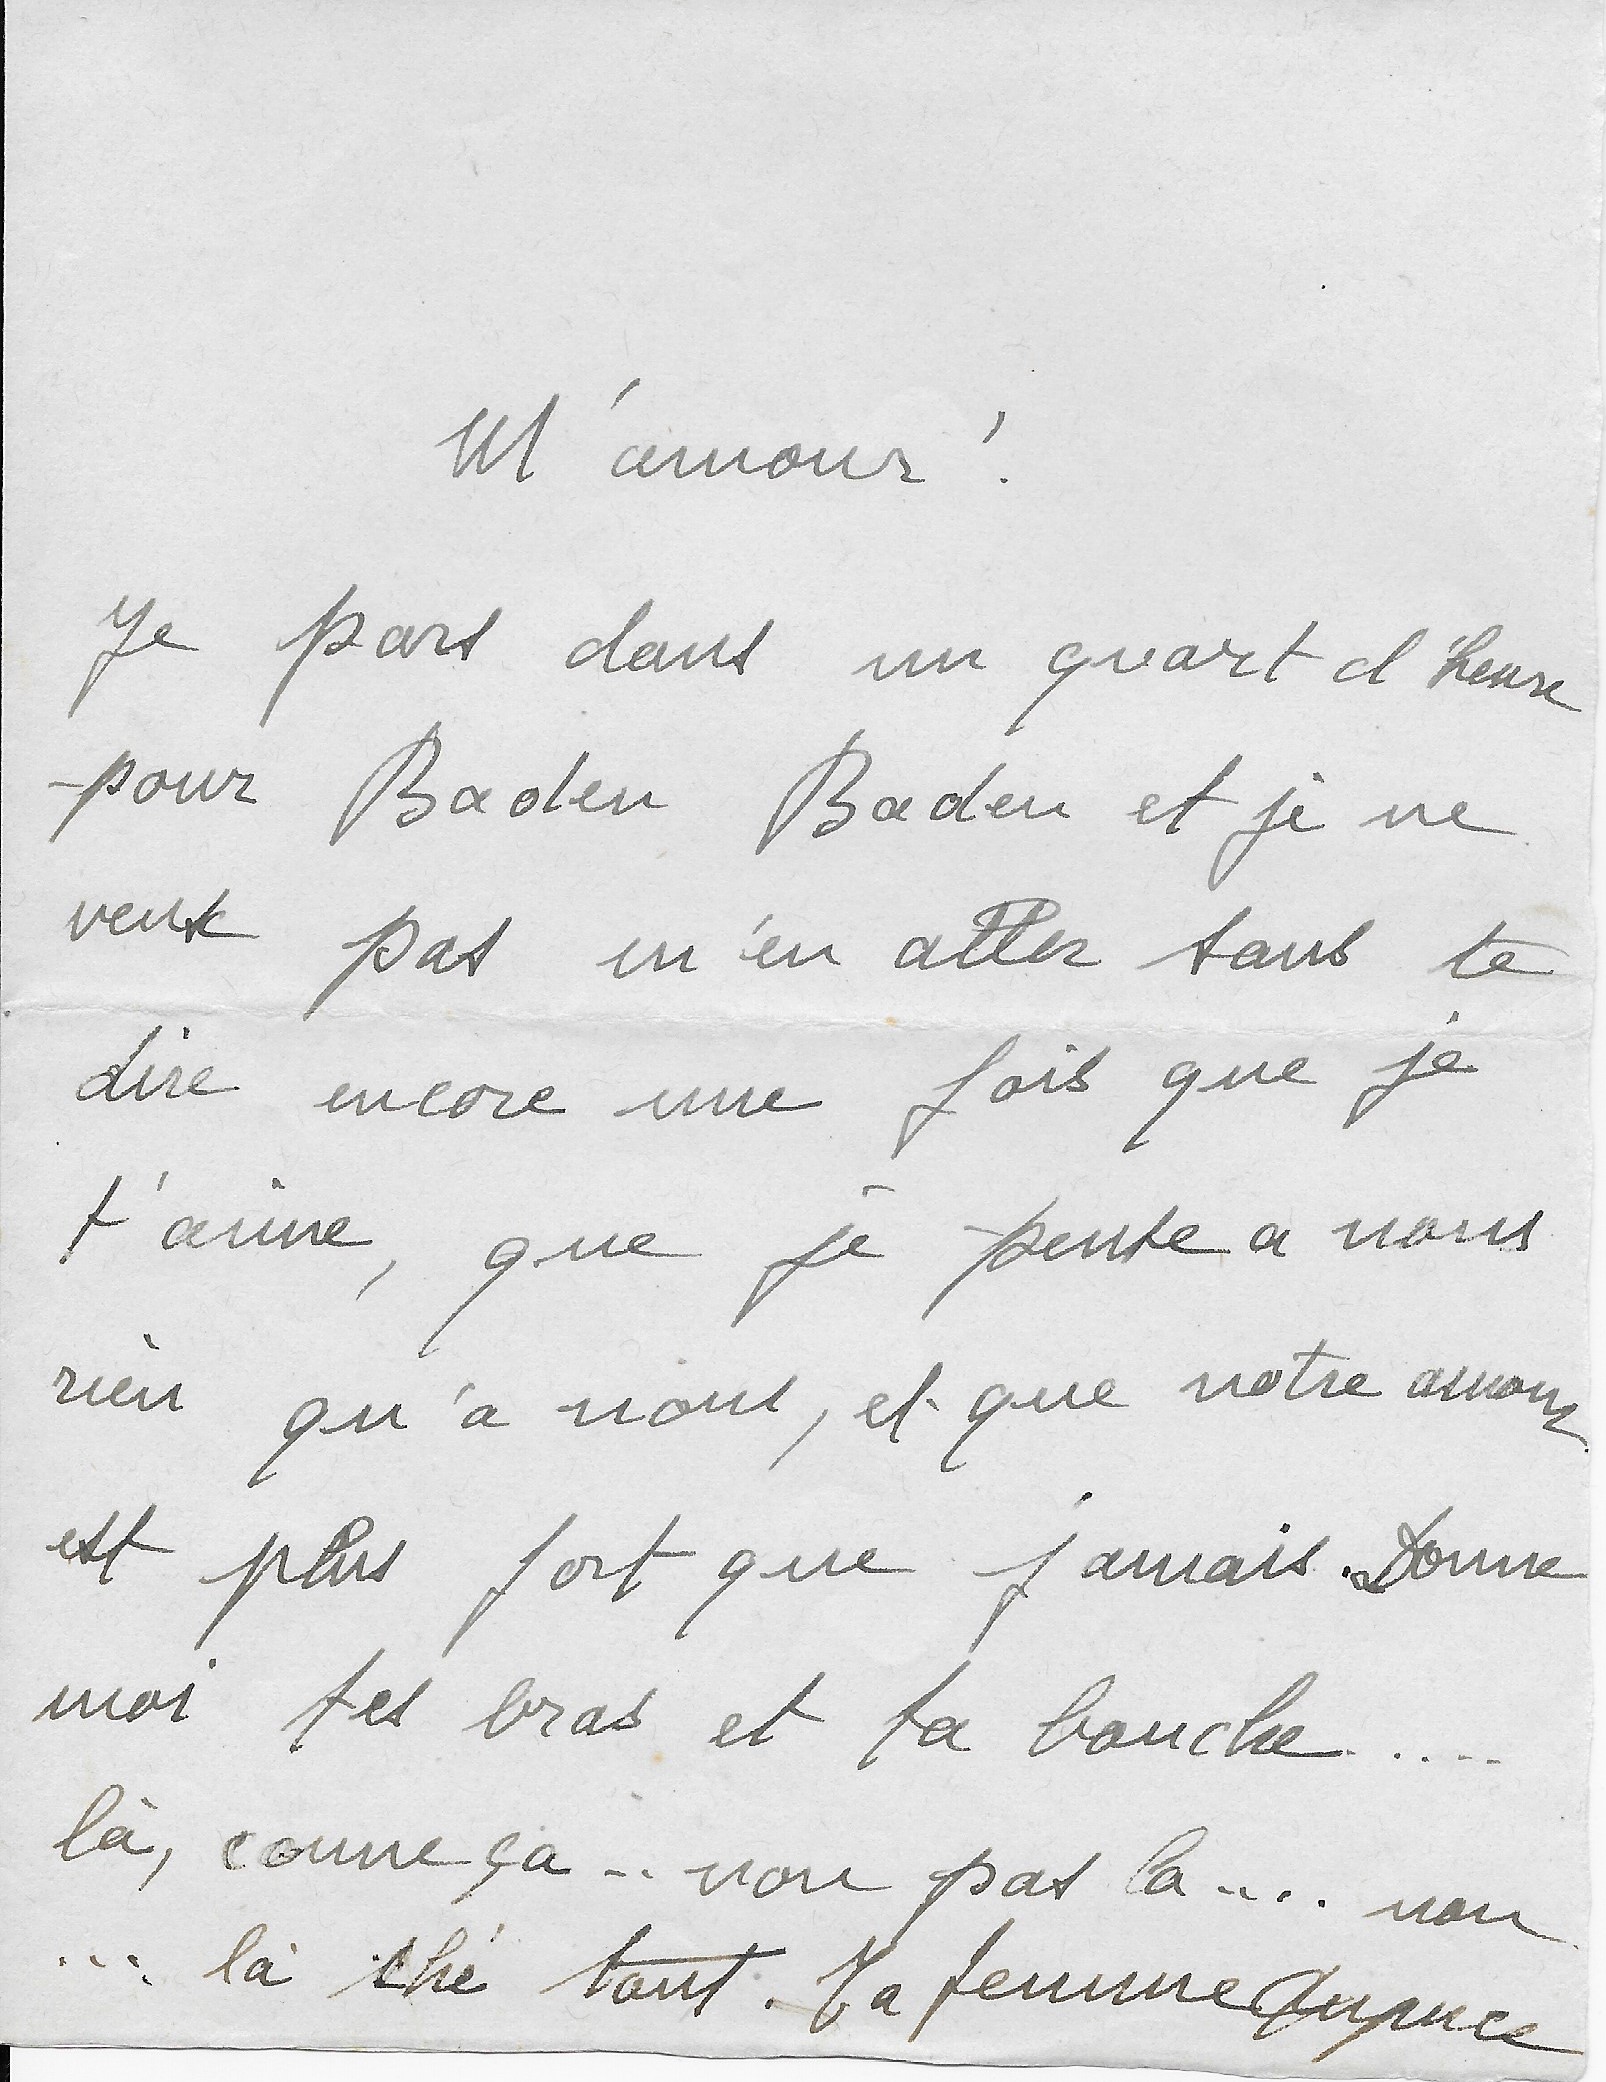 M'amour !
Je pars dans un quart d'heure
pour Baden Baden et je ne
veux pas m'en aller sans te
dire encore une fois que je
t'aime, que je pense a nous
rien qu'à nous, et que notre amour
est plus fort que jamais. Donne
moi tes bras et ta bouche.....
là, comme ça .. non pas la .... non
... là ché tout. Ta femme